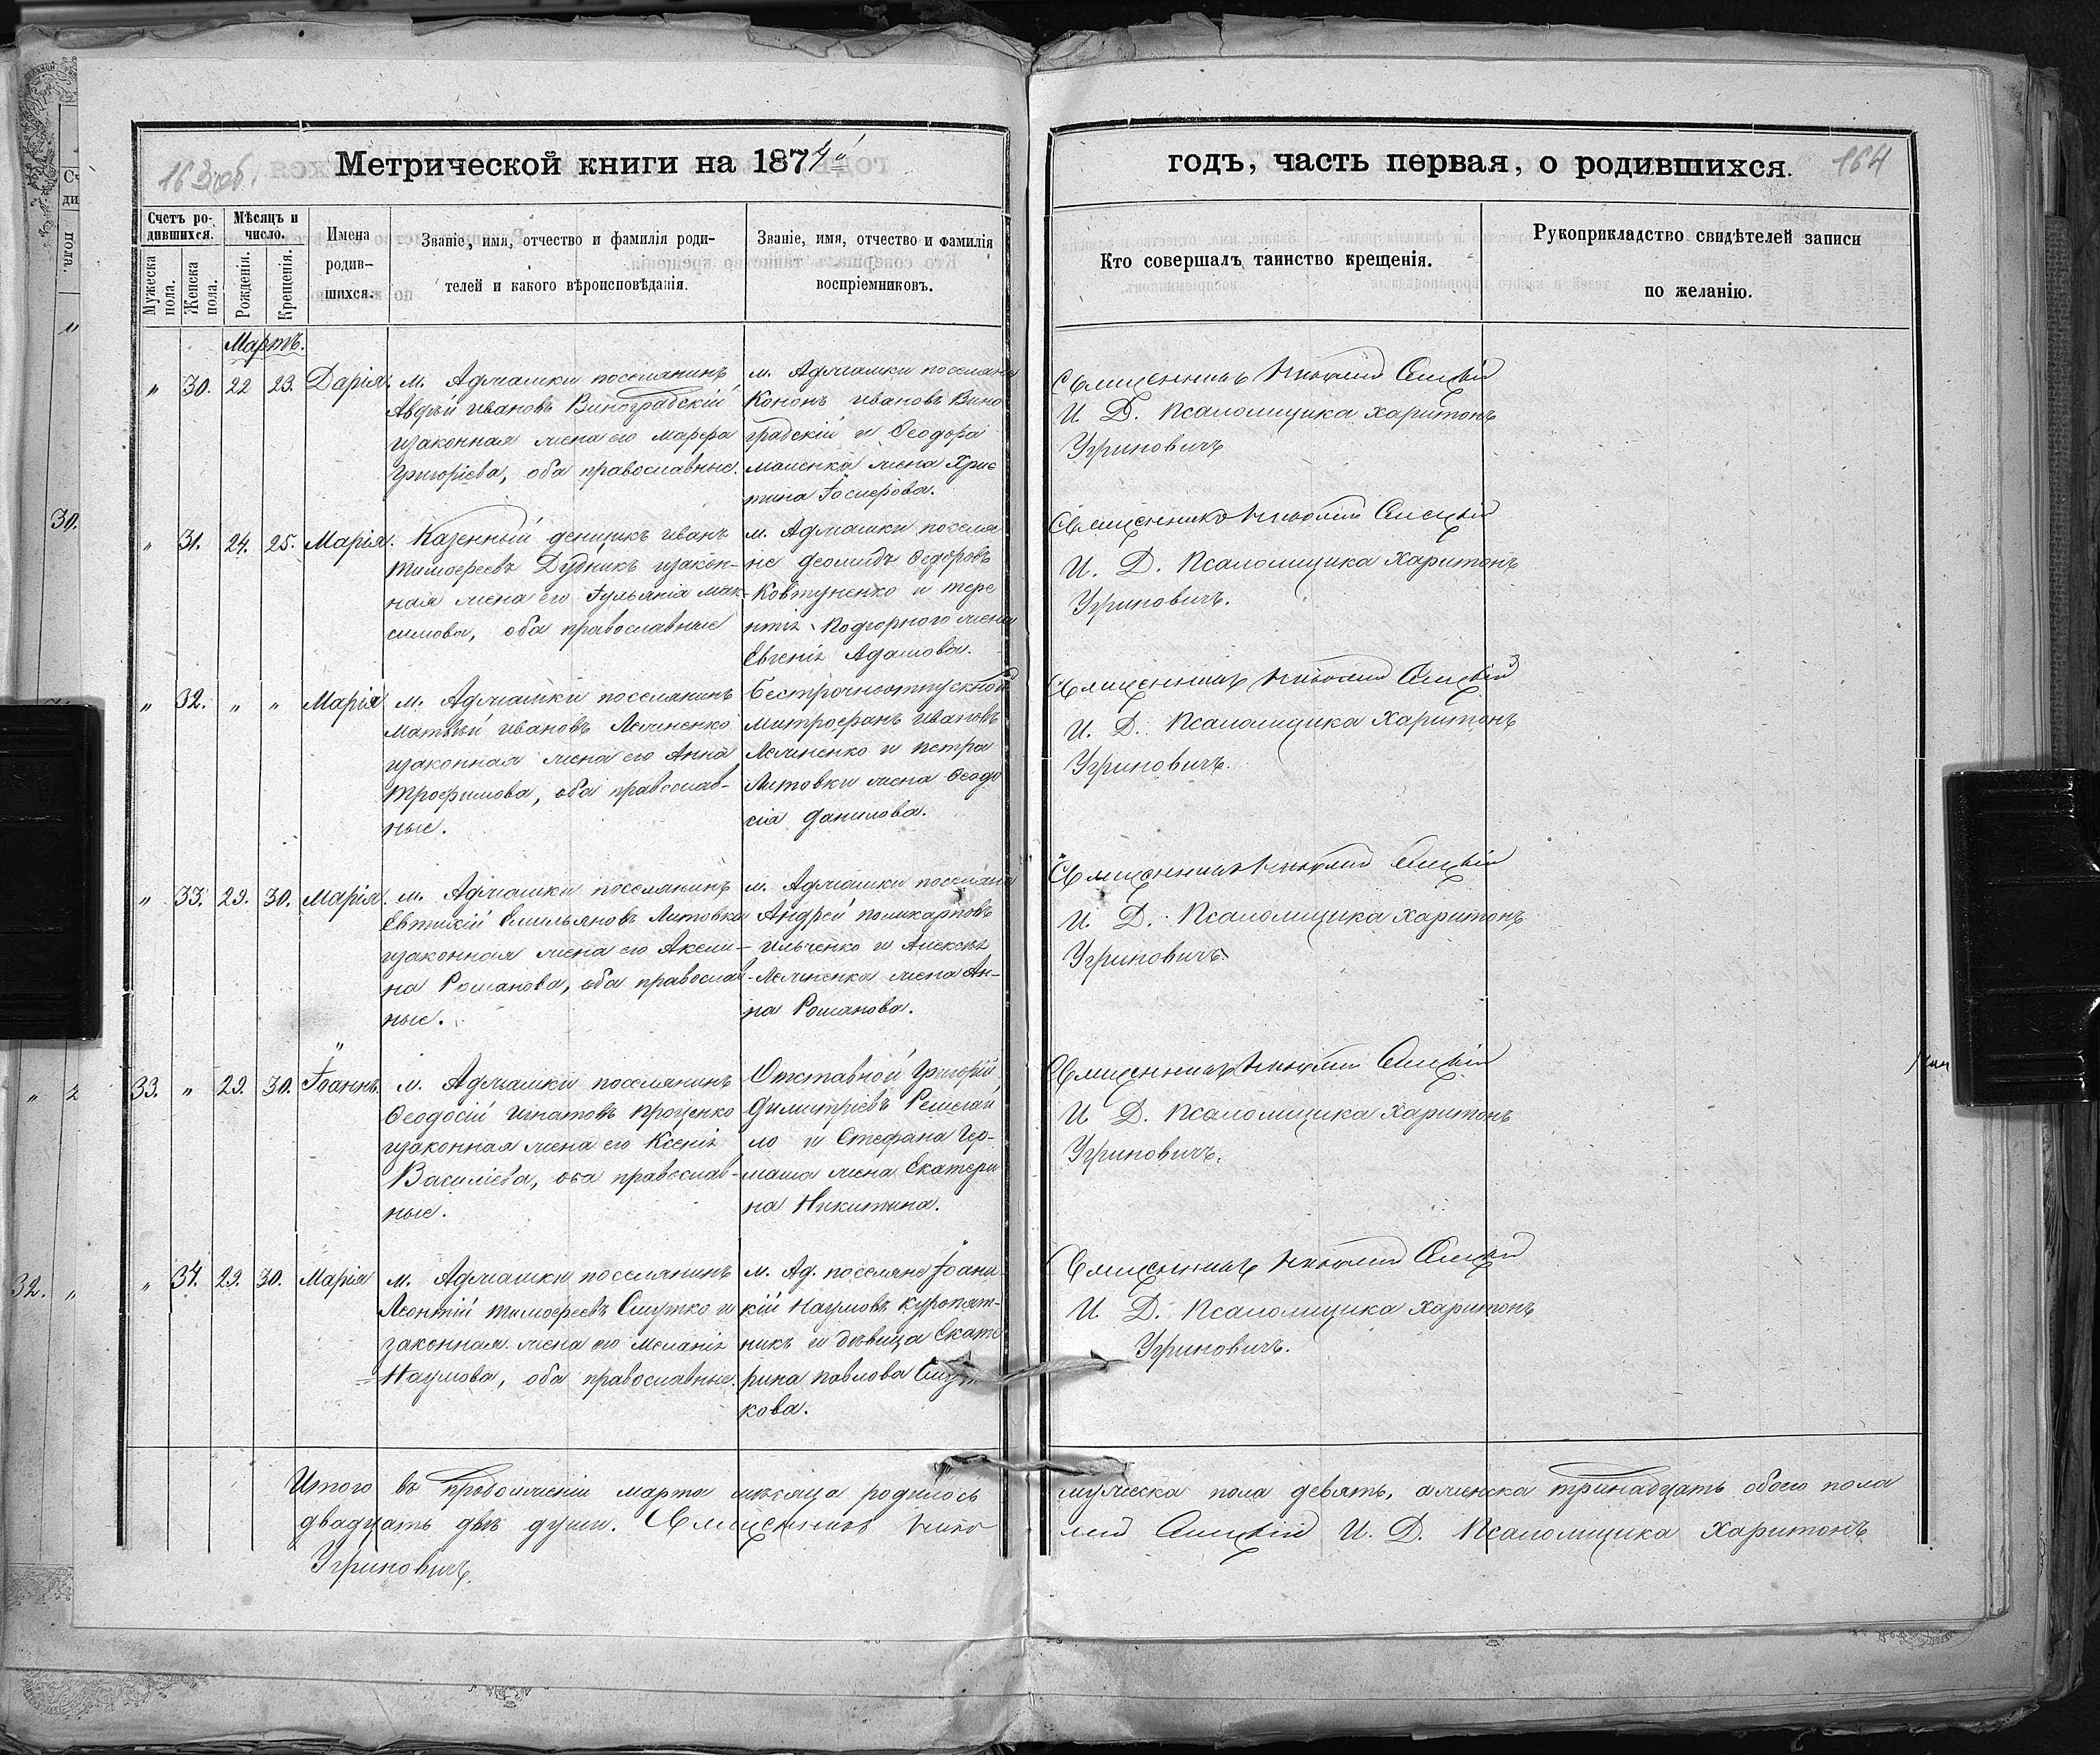 163 об.
Метрической книги на 1874й
годъ, часть первая, о родившихся.
164
Счетъ родившихся.
Мужеска пола.
Женска пола.
Мѣсяцъ и число.
Рожденія.
Крещенія.
Имена родившихся.
Званіе, имя, отчество и фамилія родителей и какого вѣроисповѣданія.
Званіе, имя, отчество и фамилія воспріемниковъ.
Кто совершалъ таинство крещенія.
Рукоприкладство свидѣтелей записи по желанію.
Мартъ.
" 30. 22 23. Дарія.
м. Аджамки поселянинъ
Авдѣй Ивановъ Виноградскій
и законная жена его Марфа
Григоріева, оба православные.
м. Аджамки поселяне
Кононъ Ивановъ Вино
градскій и Ѳеодора
жена Хрис
тина
Священникъ
И. Д. Псаломщика Харитонъ
Угриновичъ
" 31. 24. 25. Марія.
Казенный денщикъ Иванъ
Тимофеевъ Дудникъ и закон-
ная жена его Іуліанія Мак-
симова, оба православные
м. Аджамки поселя
не Ѳедоровъ
Ковтуненко и Тере
нтія Подгорного жена
Евгенія Адамова.
Священникъ
И. Д. Псаломщика Харитонъ
Угриновичъ.
" 32. " " Марія
м. Аджамки поселянинъ
Матвѣй Ивановъ
и законная жена его Анна
Трофимова, оба православ-
ные.
Безсрочноотпускной
Митрофанъ Ивановъ
и Петра
Литовки жена Ѳеодо
сія Данилова.
Священникъ
И. Д. Псаломщика Харитонъ
Угриновичъ.
" 33. 29. 30. Марія.
м. Аджамки поселянинъ
Евтихій Емильяновъ Литовка
и законная жена его Аксені-
на Романова, оба православ-
ные.
м. Аджамки поселяне
Андрей Поликарповъ
Ильченко и Алексѣя
жена Ан-
на Романова.
Священникъ
И. Д. Псаломщика Харитонъ
Угриновичъ.
33. " 29. 30. Іоаннъ.
м. Аджамки поселянинъ
Ѳеодосій Игнатовъ Проценко
и законная жена его Ксенія
Василіева, оба православ-
ные.
Отставной Григорій
Димитріевъ
ло и Стефана Гер-
маша жена Екатери
на Никитина.
Священникъ
И. Д. Псаломщика Харитонъ
Угриновичъ.
" 34. 29. 30. Марія
м. Аджамки поселянинъ
Леонтій Тимофеевъ Смутко и
законная жена его Меланія
Наумова, оба православные.
м. Ад. поселяне Іоани
кій Наумовъ Куропят-
никъ и дѣвица Екате
рина Павлова
кова.
Священникъ
И. Д. Псаломщика Харитонъ
Угриновичъ.
Итого въ продолженіи марта мѣсяца родилось мужеска пола девять, а женска тринадцать обоего пола
двадцать двѣ души. Священникъ И. Д. Псаломщика Харитонъ
Угриновичъ.